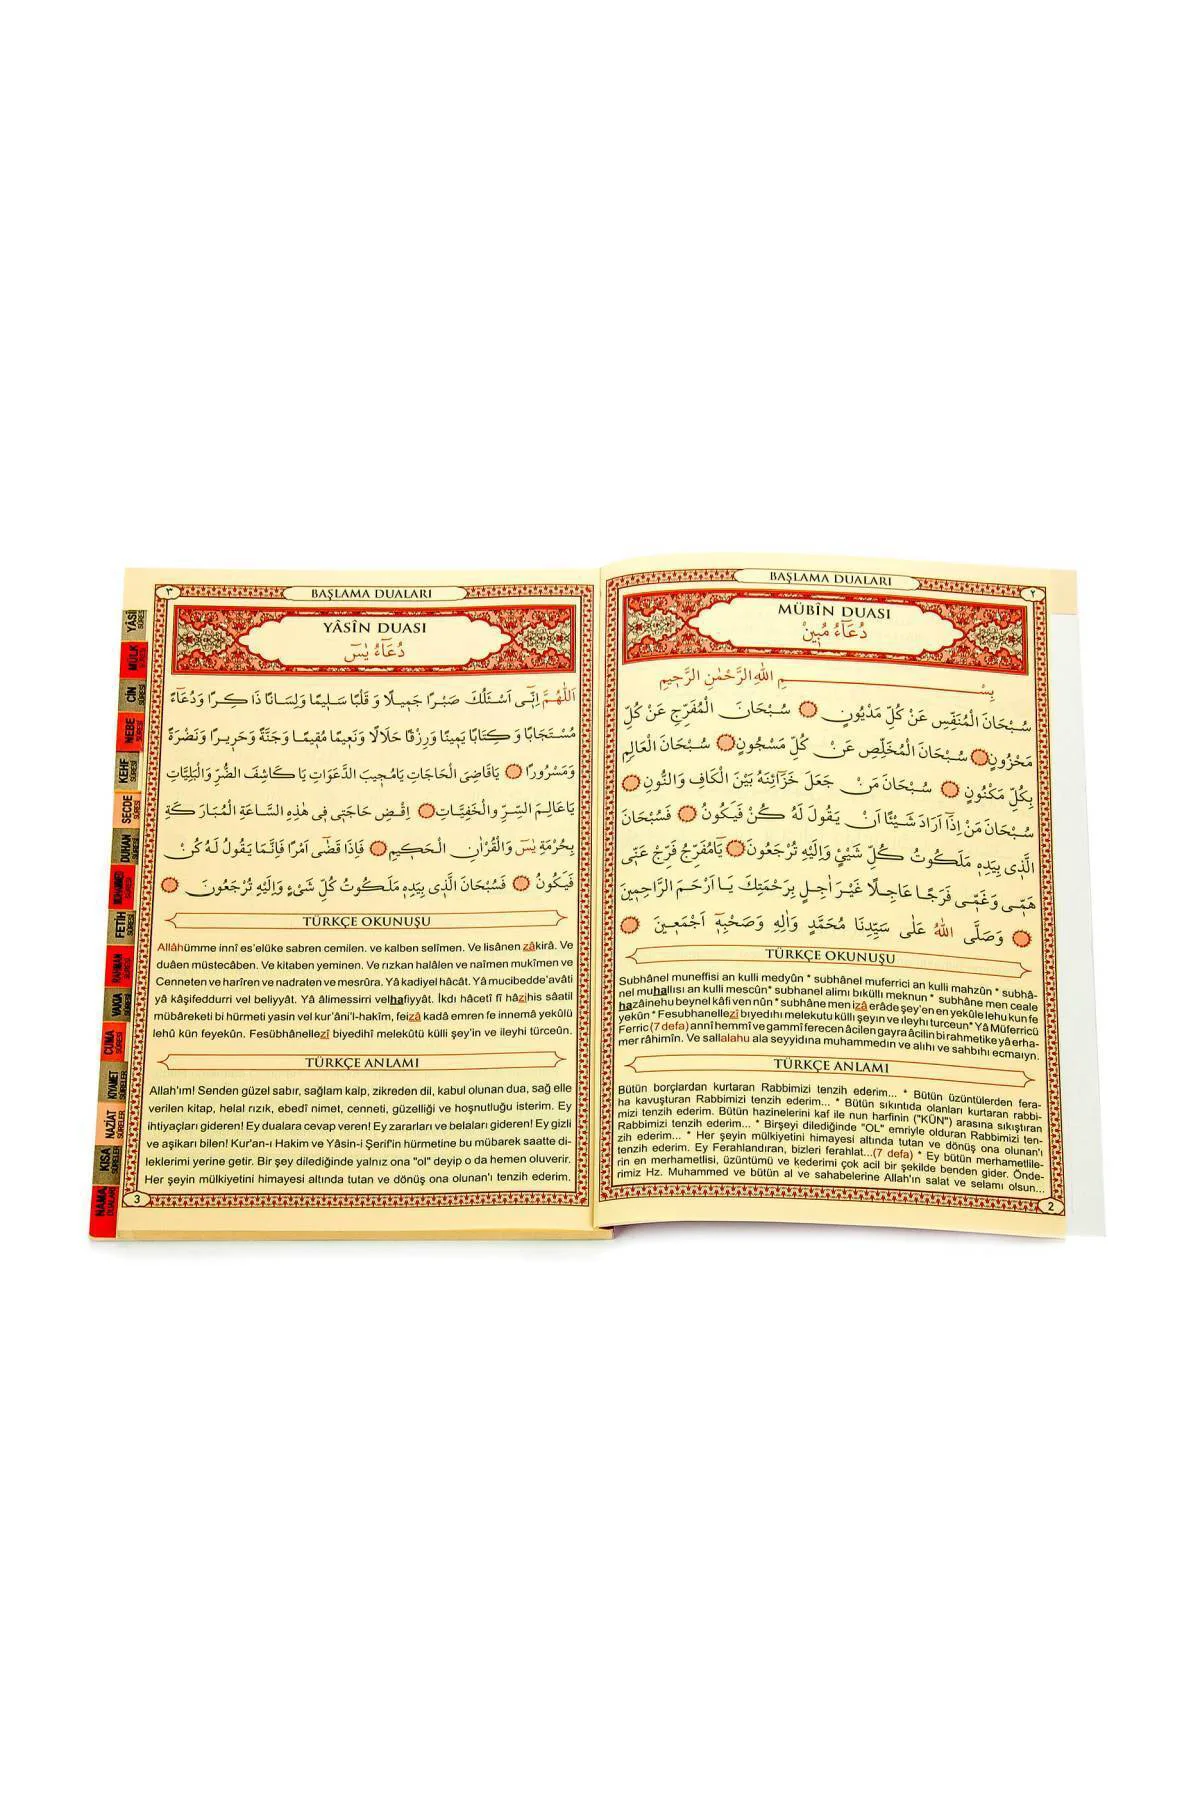 BAŞLAMA DUALARI
٢
MÜBÎN DUASI
دُعَاءُ مُبٖينْ
بِسْــــمِ اللّٰهِ الرَّحْمٰنِ الرَّحٖيمِ
سُبْحَانَ الْمُنَفِّسِ عَنْ كُلِّ مَدْيُونٍ سُبْحَانَ الْمُفَرِّجِ عَنْ كُلِّ
مَحْزُونٍ سُبْحَانَ الْمُخَلِّصِ عَنْ كُلِّ مَسْجُونٍ سُبْحَانَ الْعَالِمِ
بِكُلِّ مَكْنُونٍ سُبْحَانَ مَنْ جَعَلَ خَزَائِنَهُ بَيْنَ الْكَافِ وَالنُّونِ
سُبْحَانَ مَنْ اِذَٓا اَرَادَ شَيْئًا اَنْ يَقُولَ لَهُ كُنْ فَيَكُونُ فَسُبْحَانَ
الَّذٖى بِيَدِهٖ مَلَكُوتُ كُلِّ شَيْئٍ وَاِلَيْهِ تُرْجَعُونَ يَامُفَرِّجُ فَرِّجْ عَنّٖى
هَمّٖى وَغَمّٖى فَرَجًا عَاجِلًا غَيْرَ اٰجِلٍ بِرَحْمَتِكَ يَا اَرْحَمَ الرَّاحِمٖينَ
وَصَلَّى اللّٰهُ عَلٰى سَيِّدِنَا مُحَمَّدٍ وَاٰلِهٖ وَصَحْبِهٖٓ اَجْمَعٖينَ
TÜRKÇE OKUNUŞU
Subhânel muneffisi an kulli medyûn * subhânel muferrici an kulli mahzûn * subhâ-
nel muhallısı an kulli mescûn* subhanel alimı bıküllı meknun * subhâne men ceale
hazâinehu beynel kâfi ven nûn * subhâne men izâ erâde şey'en en yekûle lehu kun fe
yekûn * Fesubhanellezî biyedıhı melekutu küllı şeyın ve ileyhı turceun* Yâ Müferricü
Ferric(7 defa) annî hemmî ve gammî ferecen âcilen gayra âcilin birahmetike yâ erha-
mer râhimîn. Ve sallalahu ala seyyidına muhammedın ve alıhı ve sahbıhı ecmaıyn.
TÜRKÇE ANLAMI
Bütün borçlardan kurtaran Rabbimizi tenzih ederim... * Bütün üzüntülerden fera-
ha kavuşturan Rabbimizi tenzih ederim... * Bütün sıkıntıda olanları kurtaran rabbi-
mizi tenzih ederim. Bütün hazinelerini kaf ile nun harfinin ("KÜN") arasına sıkıştıran
Rabbimizi tenzih ederim... * Birşeyi dilediğinde "OL" emriyle olduran Rabbimizi ten-
zih ederim... * Her şeyin mülkiyetini himayesi altında tutan ve dönüş ona olunan'ı
tenzih ederim. Ey Ferahlandıran, bizleri ferahlat...(7 defa) * Ey bütün merhametlile-
rin en merhametlisi, üzüntümü ve kederimi çok acil bir şekilde benden gider. Önde-
rimiz Hz. Muhammed ve bütün al ve sahabelerine Allah'ın salat ve selamı olsun...
2
٣
BAŞLAMA DUALARI
YÂSÎN DUASI
دُعَاءُ يٰسٓ
اَللّٰهُمَّ اِنّٖٓى اَسْئَلُكَ صَبْرًا جَمٖيلًا وَ قَلْبًا سَلٖيمًا وَلِسَانًا ذَاكِرًا وَدُعَٓاءً
مُسْتَجَابًا وَ كِتَابًا يَمٖينًا وَرِزْقًا حَلَالًا وَنَعٖيمًا مُقٖيمًا وَجَنَّةً وَحَرٖيرًا وَنَضْرَةً
وَمَسْرُورًا يَاقَاضِىَ الْحَاجَاتِ يَامُجٖيبَ الدَّعَوَاتِ يَا كَاشِفَ الضُّرِّ وَالْبَلِيَّاتِ
يَاعَالِمَ السِّرِّ وَالْخَفِيَّاتِ اِقْضِ حَاجَتٖى فٖى هٰذِهِ السَّاعَةِ الْمُبَارَكَةِ
بِحُرْمَةِ يٰسٓ وَالْقُرْاٰنِ الْحَكٖيمِ فَاِذَا قَضٰٓى اَمْرًا فَاِنَّمَا يَقُولُ لَهُ كُنْ
فَيَكُونُ فَسُبْحَانَ الَّذٖى بِيَدِهٖ مَلَكُوتُ كُلِّ شَىْءٍ وَاِلَيْهِ تُرْجَعُونَ
TÜRKÇE OKUNUŞU
Allâhümme innî es'elüke sabren cemilen. ve kalben selîmen. Ve lisânen zâkirâ. Ve
duâen müstecâben. Ve kitaben yeminen. Ve rızkan halâlen ve naîmen mukîmen ve
Cenneten ve harîren ve nadraten ve mesrûra. Yâ kadiyel hâcât. Yâ mucibedde'avâti
yâ kâşifeddurri vel beliyyât. Yâ âlimessirri velhafiyyât. İkdı hâcetî fî hâzihis sâatil
mübâreketi bi hürmeti yasin vel kur'âni'l-hakîm, feizâ kadâ emren fe innemâ yekûlü
lehû kün feyekûn. Fesübhânellezî biyedihî melekûtü külli şey'in ve ileyhi türceûn.
TÜRKÇE ANLAMI
Allah'ım! Senden güzel sabır, sağlam kalp, zikreden dil, kabul olunan dua, sağ elle
verilen kitap, helal rızık, ebedî nimet, cenneti, güzelliği ve hoşnutluğu isterim. Ey
ihtiyaçları gideren! Ey dualara cevap veren! Ey zararları ve belaları gideren! Ey gizli
ve aşikarı bilen! Kur'an-ı Hakim ve Yâsin-i Şerif'in hürmetine bu mübarek saatte di-
leklerimi yerine getir. Bir şey dilediğinde yalnız ona "ol" deyip o da hemen oluverir.
Her şeyin mülkiyetini himayesi altında tutan ve dönüş ona olunan'ı tenzih ederim.
3
YÂSÎN SÛRESİ
MÜLK SÛRESİ
CİN SÛRESİ
NEBE SÛRESİ
KEHF SÛRESİ
SECDE SÛRESİ
DUHAN SÛRESİ
MUHAMMED SÛRESİ
FETİH SÛRESİ
RAHMÂN SÛRESİ
VAKIA SÛRESİ
CUMA SÛRESİ
KIYAMET SÛRELER
NAZİAT SÛRELER
KISA SÛRELER
NAMAZ DUALARI